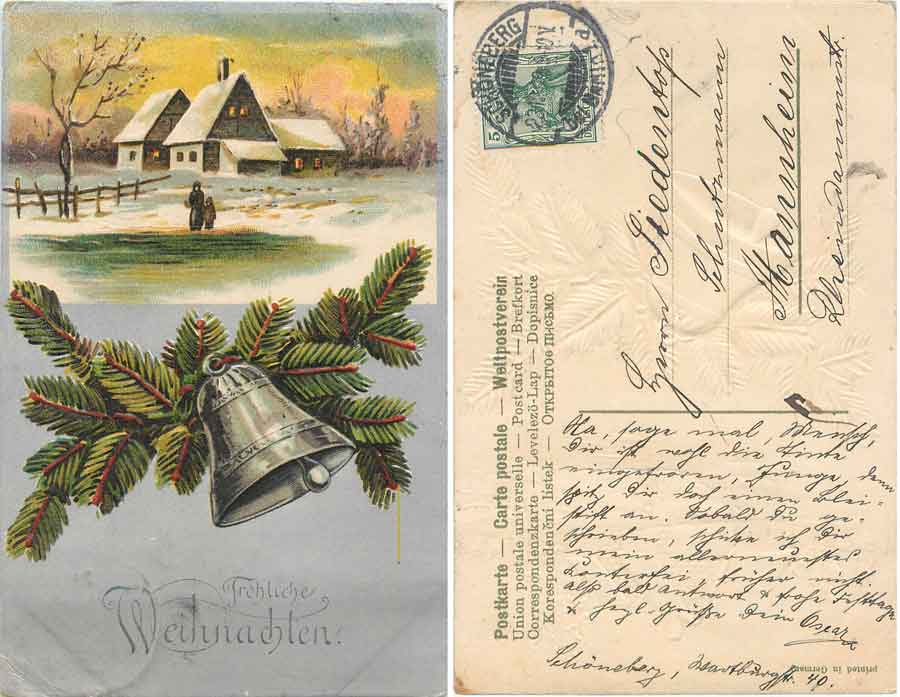 Fröhliche
Weihnachten!
SCHÖNEBERG
5
Herrn
Schutzmann
Mannheim
Postkarte — Carte postale — Weltpostverein
Union postale universelle — Postcard — Brefkort
Correspondenzkarte — Levelező-Lap — Dopisnice
Korespondenční listek — Открытое письмо.
Na, sage mal, Mensch,
dir ist wohl die Tinte
eingefroren, Junge, dann
spitz dir doch einen Blei-
stift an. Sobald du ge-
schrieben, schicke ich dir
mein allerneuestes
Konterfei, früher nicht.
Also bald Antwort & frohe Festtage
& hzgl. Grüße dein Oscar
Schöneberg, Wartburgstr. 40.
printed in Germany